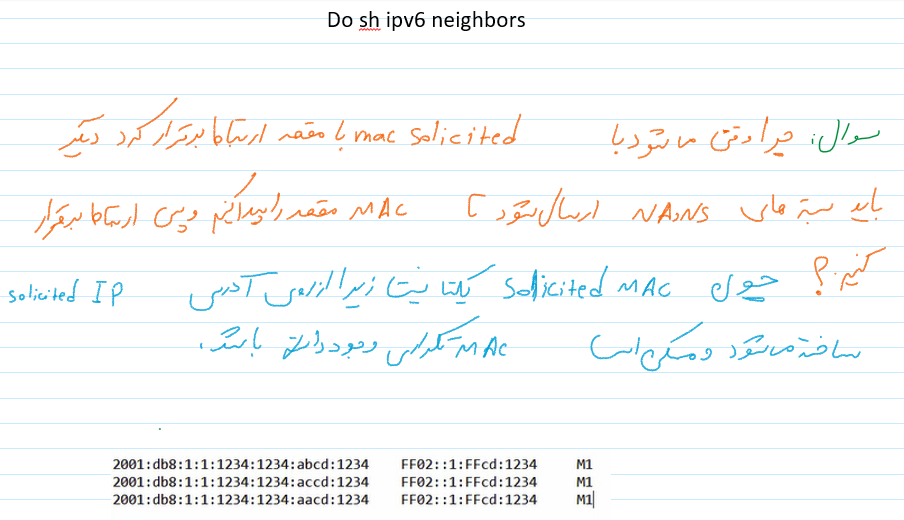 Do sh ipv6 neighbors
سوال: چرا وقتی میشود با mac solicited با مقصد ارتباط برقرار کرد دیگر
باید بسته های NA و NS ارسال شود تا MAC مقصد را پیدا کنیم و سپس ارتباط برقرار
کنیم؟
چون Solicited MAC یکتا نیست زیرا از روی آدرس solicited IP
ساخته میشود و ممکن است MAC تکراری وجود داشته باشد.
2001:db8:1:1:1234:1234:abcd:1234 FF02::1:FFcd:1234 M1
2001:db8:1:1:1234:1234:accd:1234 FF02::1:FFcd:1234 M1
2001:db8:1:1:1234:1234:aacd:1234 FF02::1:FFcd:1234 M1